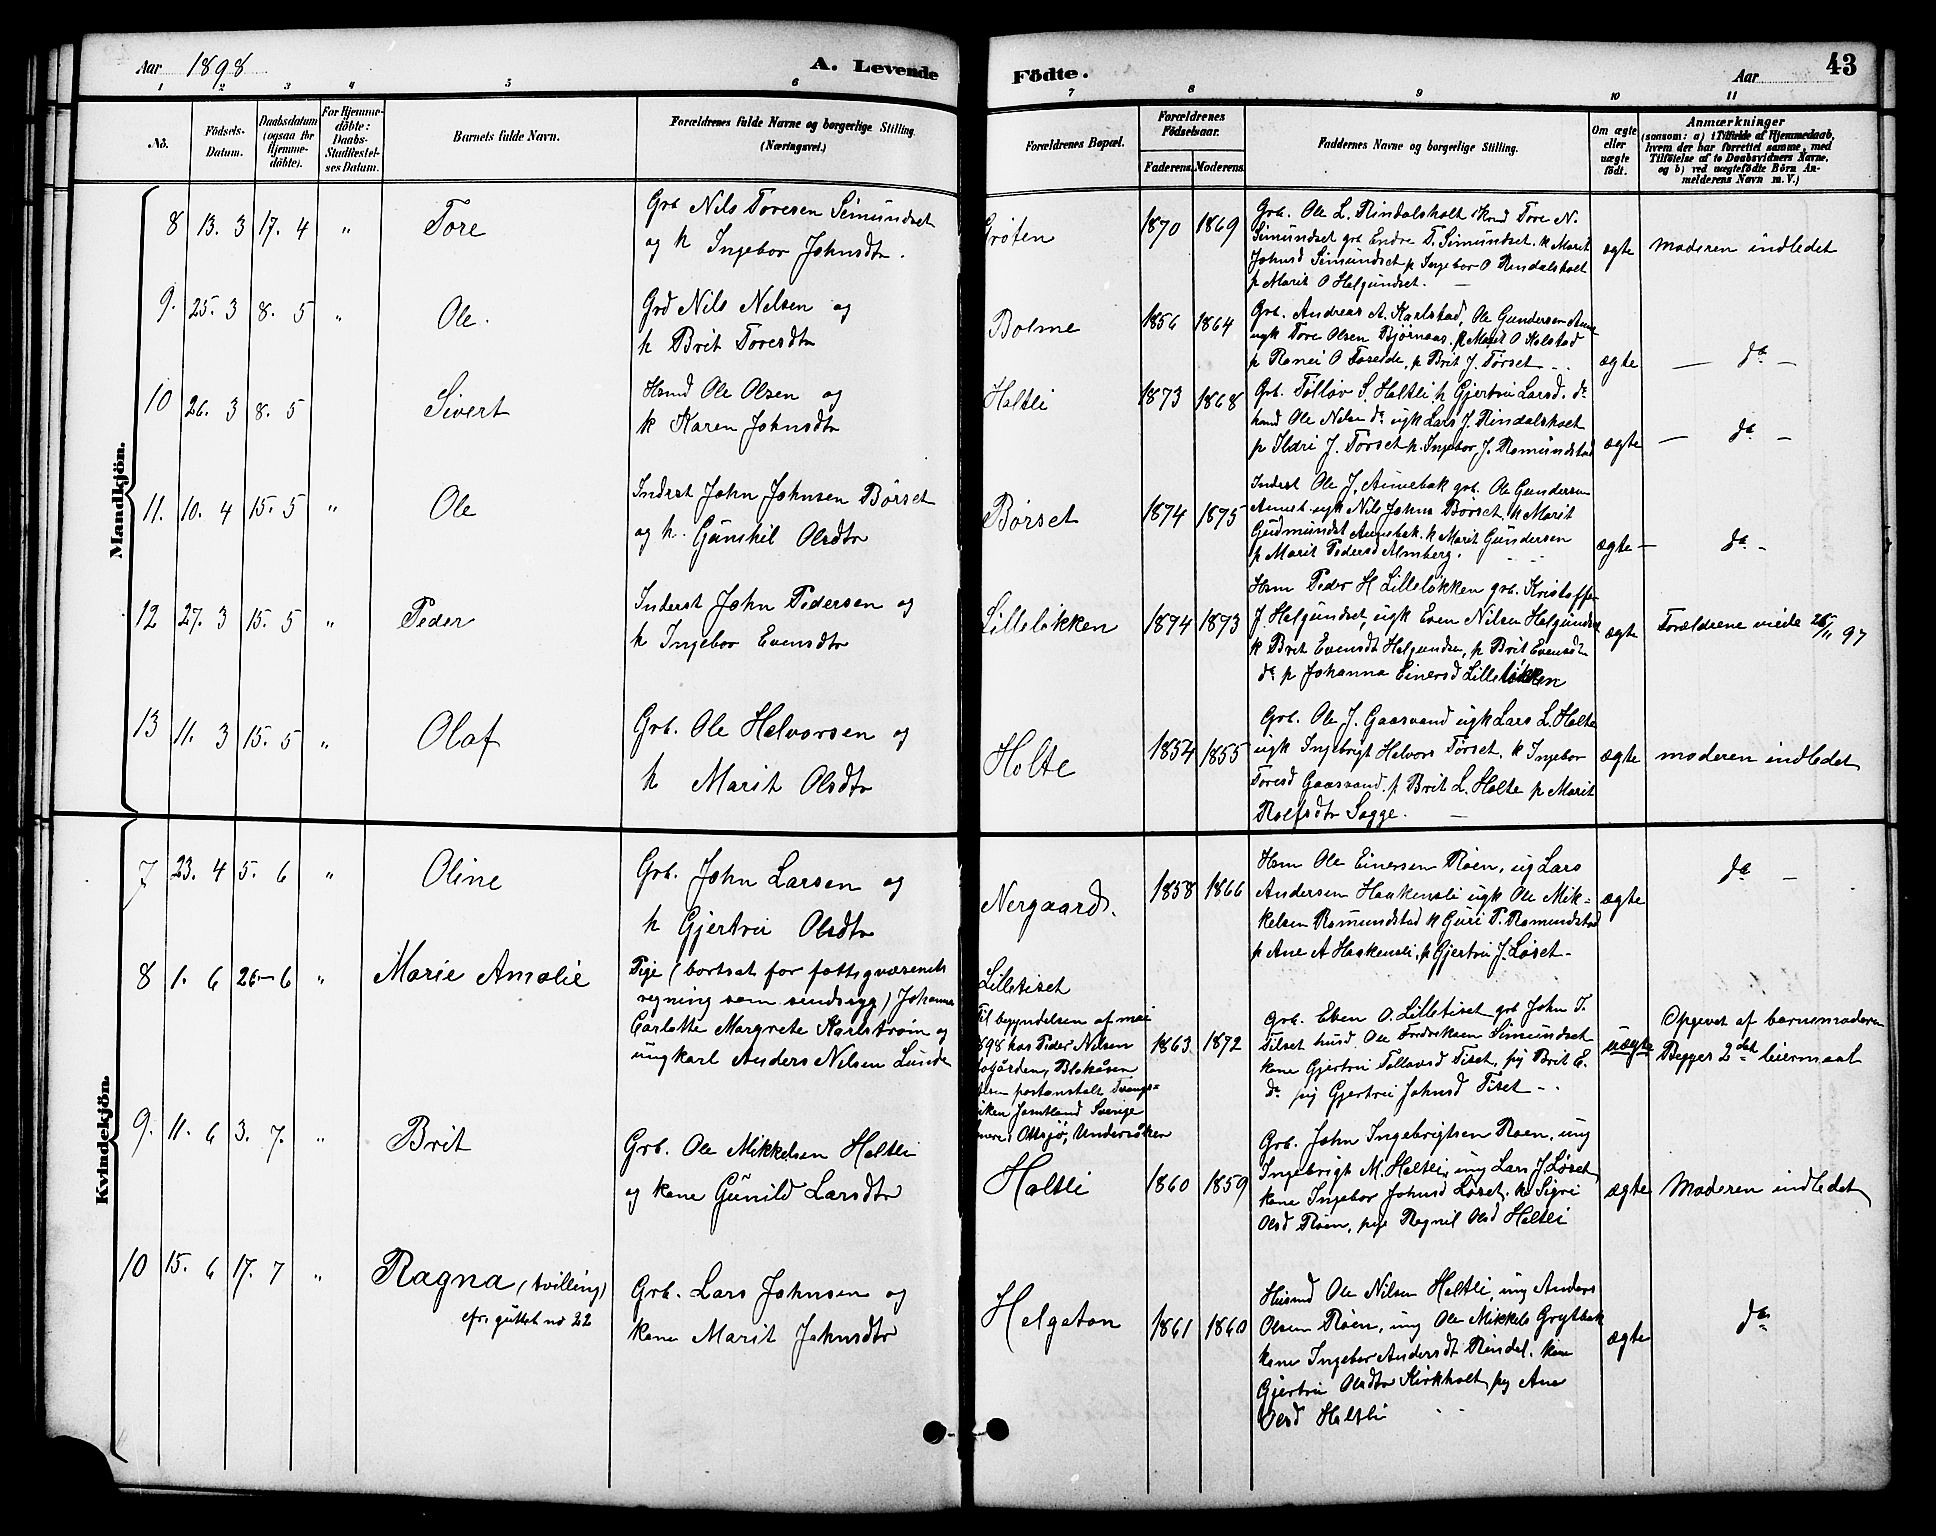 Aar 1898
A. Levende
Födte.
Aar
43
1 2 3 4 5 6 7 8 9 10 11
No.
Födsels-
Datum.
Daabsdatum
(ogsaa for
Hjemme-
döbte).
For Hjemme-
döbte:
Daabs-
Stadfæstel-
ses Datum.
Barnets fulde Navn.
Forældrenes fulde Navne og borgerlige Stilling.
(Næringsvei.)
Forældrenes Bopæl.
Forældrenes
Födselsaar.
Faderens. Moderens.
Faddernes Navne og borgerlige Stilling.
Om ægte
eller
uægte
födt.
Anmærkninger
(saasom: a) i Tilfælde af Hjemmedaab,
hvem der har forrettet samme, med
Tilföielse af to Daabsvidners Navne,
og b) ved uægtefödte Börn An-
melderens Navn m. V.)
Mandkjön.
8 13. 3 17. 4 " Tore
Grb Nils Toresen Simundset
og k Ingebor Johnsdtr.
Grøten
1870 1869
Grb. Ole L. Rindalsholt Tore N.
Simundset grb Endre T. Simundset. k Marit
Johnsd Simundset p Ingebor O Rindalsholt
p Marit O Helgundset. —
ægte
moderen indledet
9. 25. 3 8. 5 " Ole.
Grd Nils Nelsen og
k Brit Toresdtr
Bolme
1856 1864
Grb. Andreas A. Karlstad, Ole Gundersen Aune
ugk Tore Olsen Bjørnaas. p Marit O Kolstad
p Ranei O , p Brit J. Tørset - .
ægte
— da —
10 26. 3 8. 5 Sivert
Hsmd Ole Olsen og
k Karen Johnsdtr
Holtli
1873 1868
Grb. Tølløv S. Holtli, k Gjertru Larsd. do
Ole Nilsen do ugk Lars J. Rindalsholt
p Ildri J. Tørset p. Ingebor J. Romundstad
ægte
— da —
11. 10. 4 15. 5 " Ole
Inderst John Johnsen Børset
og k. Gunhil Olsdtr
Børset
1874 1875
Inderst Ole J. Aunebak grb. Ole Gundersen
Aunet ugk Nils Johns Børset, k Marit
Gudmundst Aunebak. k Marit Gundersen
p Marit Pedersd Almberg.
ægte —
da -
12 27. 3 15. 5 " Peder
Inderst John Pedersen og
k Ingebor Evensdtr
Lilleløkken
1874 1873
Hsm Peder H Lilleløkken grb. Kristoffer
J Helgundset, ugk Even Nilsen Helgundset
k Brit Evensdt Helgundse, p Brit Evensdtr
do p Johanna Einersd Lilleløkken
ægte
Forældrene viede 26/11 97
13 11. 3 15. 5 " Olaf
Grb. Ole Halvorsen og
k Marit Olsdtr
Holte
1854 1855
Grb. Ole J. Gaasvand ugk Lars L. Holte
ugk Ingebrigt Halvors Tørset. k Ingebor
Toresd Gaasvand. p Brit L. Holte p Marit
Rolfsdtr Sagge. —
ægte
moderen indledet
Kvindekjön.
7 23. 4 5. 6 " Oline
Grb. John Larsen og
k Gjertru Olsdtr
Nergaard.
1858 1866
Hsm Ole Einersen Røen, ug Lars
Andersen Haakensli ugk Ole Mik-
kelsen Romundstad k Guri T. Romundstad
p Ane A Haakensli, p Gjertru J. Løset -
ægte
da —
8 1. 6 26 — 6 " Marie Amalie
Pige (bortsat for fattigvæsenets
regning som sindssyg) Johanna
Carlotte Margrete Karlstrøm og
ungkarl Anders Nilsen Lunde
Lilletiset
Til begyndelsen af mai
1898 hos Peder Nilsen
Blokåsen
postanstalt
Jämtland Sverige
Ottsjø, Undersåker
1863 1872
Grb. Even O. Lilletiset grb John T.
Tilset husd. Ole Fredriksen Simundset
kone Gjertru Tollavsd Tiset, pig Brit E.
do pig Gjertru Johnsd Tiset - .
uægte
Opgivet af barnemoderen
Begges 2det leiermaal
9. 11. 6 3. 7. " Brit
Grb. Ole Mikkelsen Holtli
og kone Gunild Larsdtr
Holtli
1860 1859
Grb. John Ingebrigtsen Røen, ung
Ingebrigt M. Holtli, ung Lars J. Løset,
kone Ingebor Johnsd Løset. k Sigri
Olsd Røen, pige Ragnil Olsd Holtli
ægte
Moderen indledet
10 15. 6 17. 7 " Ragna (tvilling)
cfr. guttet no 22
Grb. Lars Johnsen og
kone Marit Johnsdtr
Helgeton
1861 1860
Husmd Ole Nilsen Holtli, ung Anders
Olsen Røen, ung Ole Mikkels Grytbak
kone Ingebor Andersdt Rindal. kone
Gjertru Olsdtr Kirkholt, pig Ane
Olsd Holtli
ægte
da